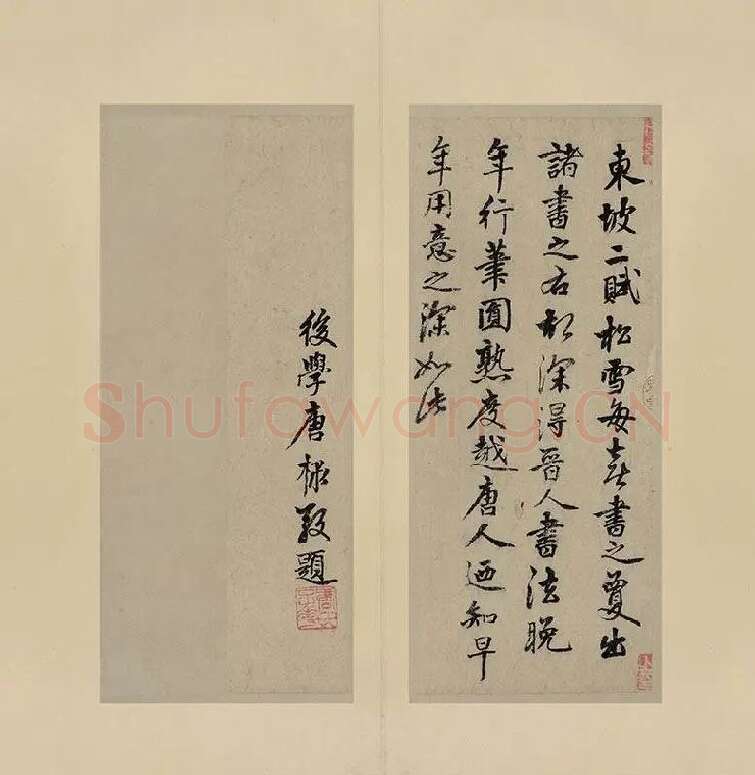 東坡二賦松雪每喜書之夐出
諸書之右深得晉人書法晚
年行筆圓熟度越唐人迺知早
年用意之深如此
後學唐棣敬題
Shufawang.CN